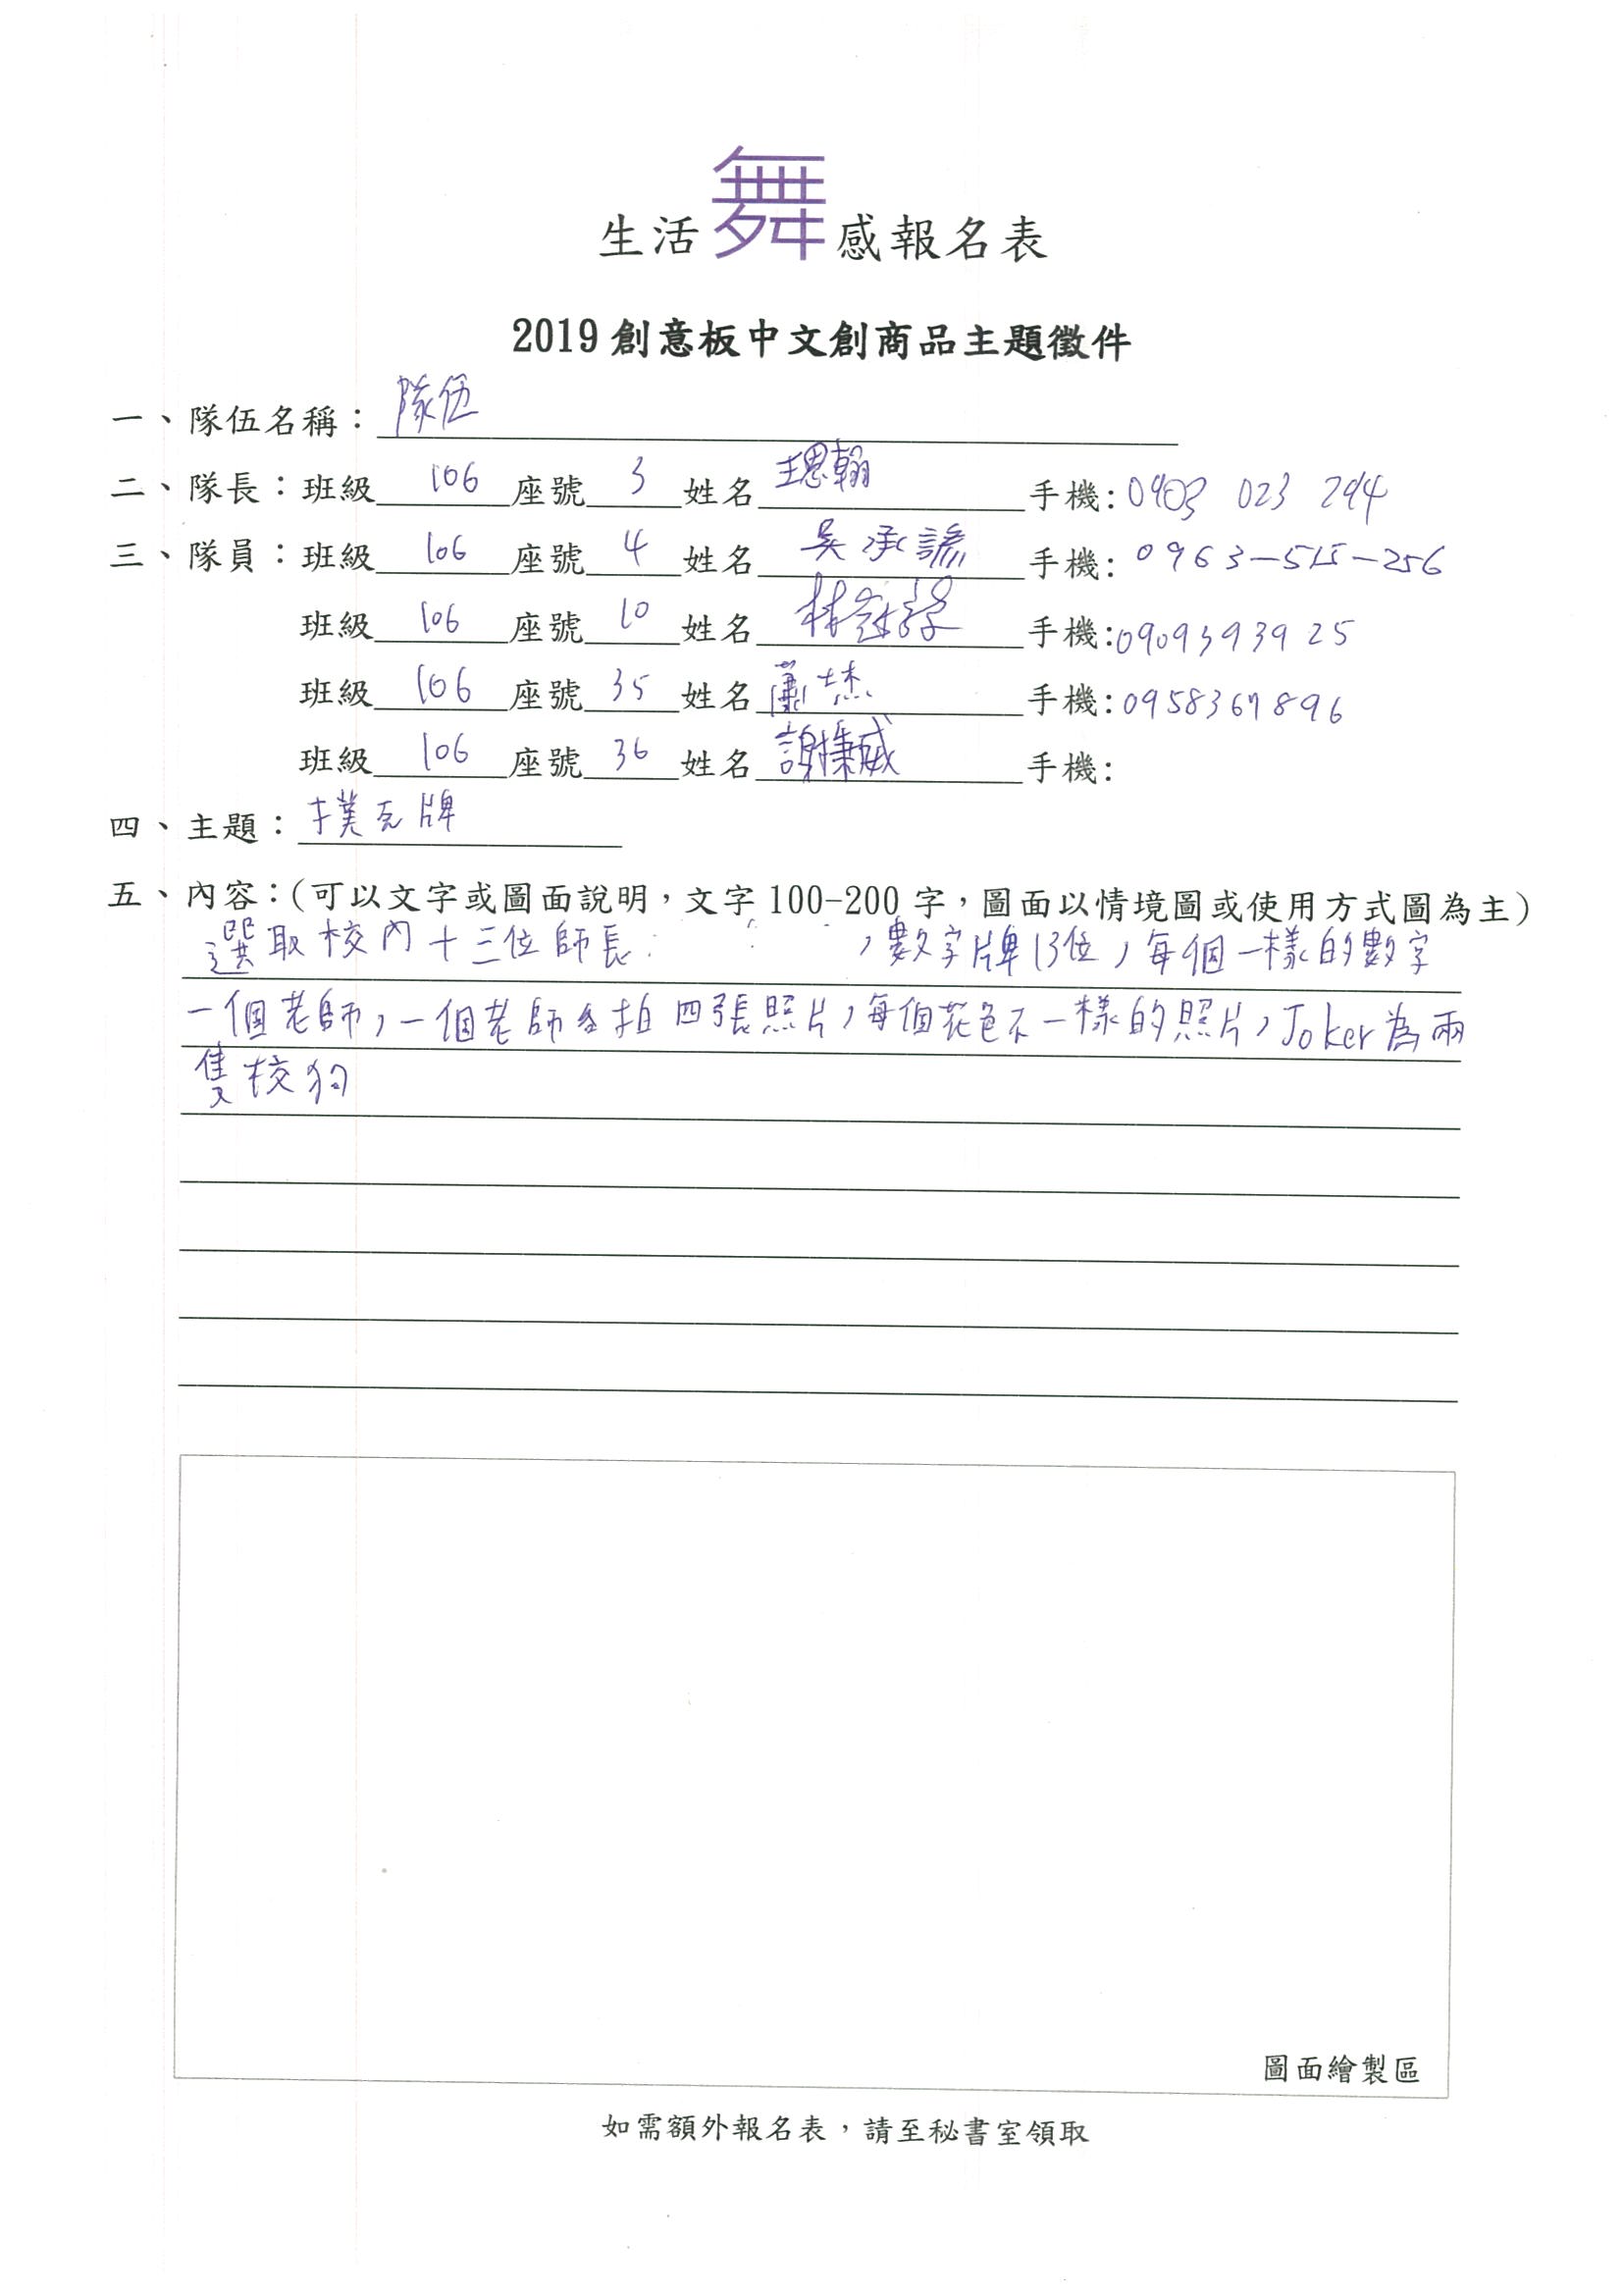 生活舞感報名表
2019創意板中文創商品主題徵件
一、隊伍名稱：隊伍
二、隊長：班級 106 座號 3 姓名 王思翰 手機: 0903 023 294
三、隊員：班級 106 座號 4 姓名 吳承諺 手機: 0963-515-256
班級 106 座號 10 姓名 林 手機:0909393925
班級 106 座號 35 姓名 蕭杰 手機:0958367896
班級 106 座號 36 姓名 謝秉威 手機:
四、主題：撲克牌
五、內容：(可以文字或圖面說明，文字100-200字，圖面以情境圖或使用方式圖為主)
選取校內十三位師長，數字牌13位，每個一樣的數字
一個老師，一個老師各拍四張照片，每個花色不一樣的照片，Joker為兩
隻校狗
圖面繪製區
如需額外報名表，請至秘書室領取